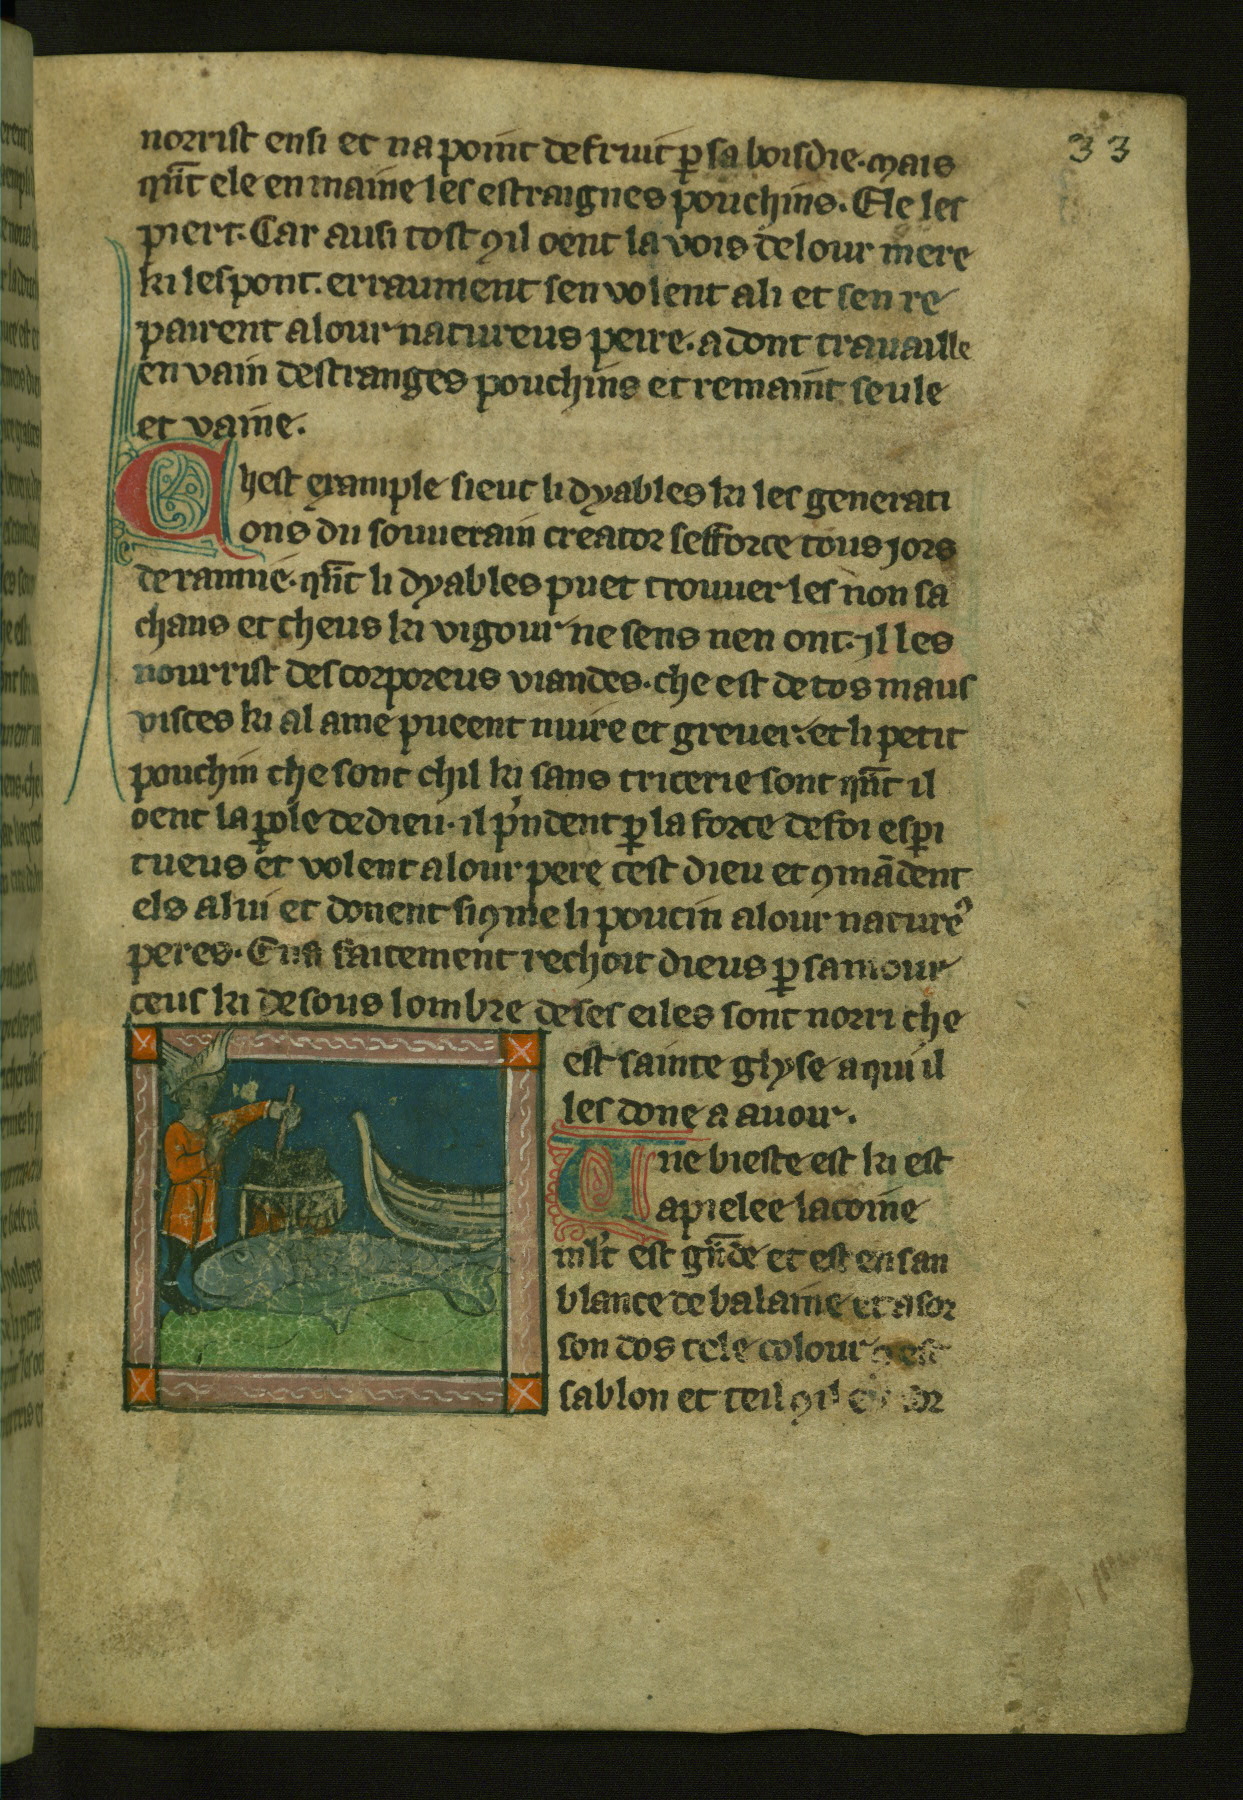 33
norrist ensi et na point de fruit p̱ sa boisdie. Mais
qn̄t ele en maine les estraignes pouchins. Ele les
piert. Car ausi tost ꝯil oent la vois de lour mere
ki les pont. erraument sen volent a li et sen re
pairent a lour natureus peire. adont travaille
en vain destranges pouchins et remaint seule
et vaine.
Chest example sieut li dyables ki les generati
ons du souverain creator sefforce tous jors
de ranue. qn̄t li dyables puet trouuer les non sa
chans et cheus ki vigour ne sens nen ont. Il les
nourrist des corporeus viandes. che est de tos maus
visces ki al ame pueent nuire et grever. et li petit
pouchin che sont chil ki sans tricerie sont qn̄t il
oent la ꝑole de dieu. il p'ndent ꝑ la force de foi espi
tueus et volent a lour pere cest dieu et ꝯmādent
els a lui et donent si ꝯme li poucin a lour nature᾿
peres. Ensi faitement rechoit dieus ꝑ samour
ceus ki desous lombre de ses eiles sont norri che
est sainte glyse a qui il
les done a avoir.
Une bieste est ki est
apielee lacoine
ml't est gn̄de et est en san
blance de balaine et a sor
son dos tele colour est
sablon et teil ꝯil